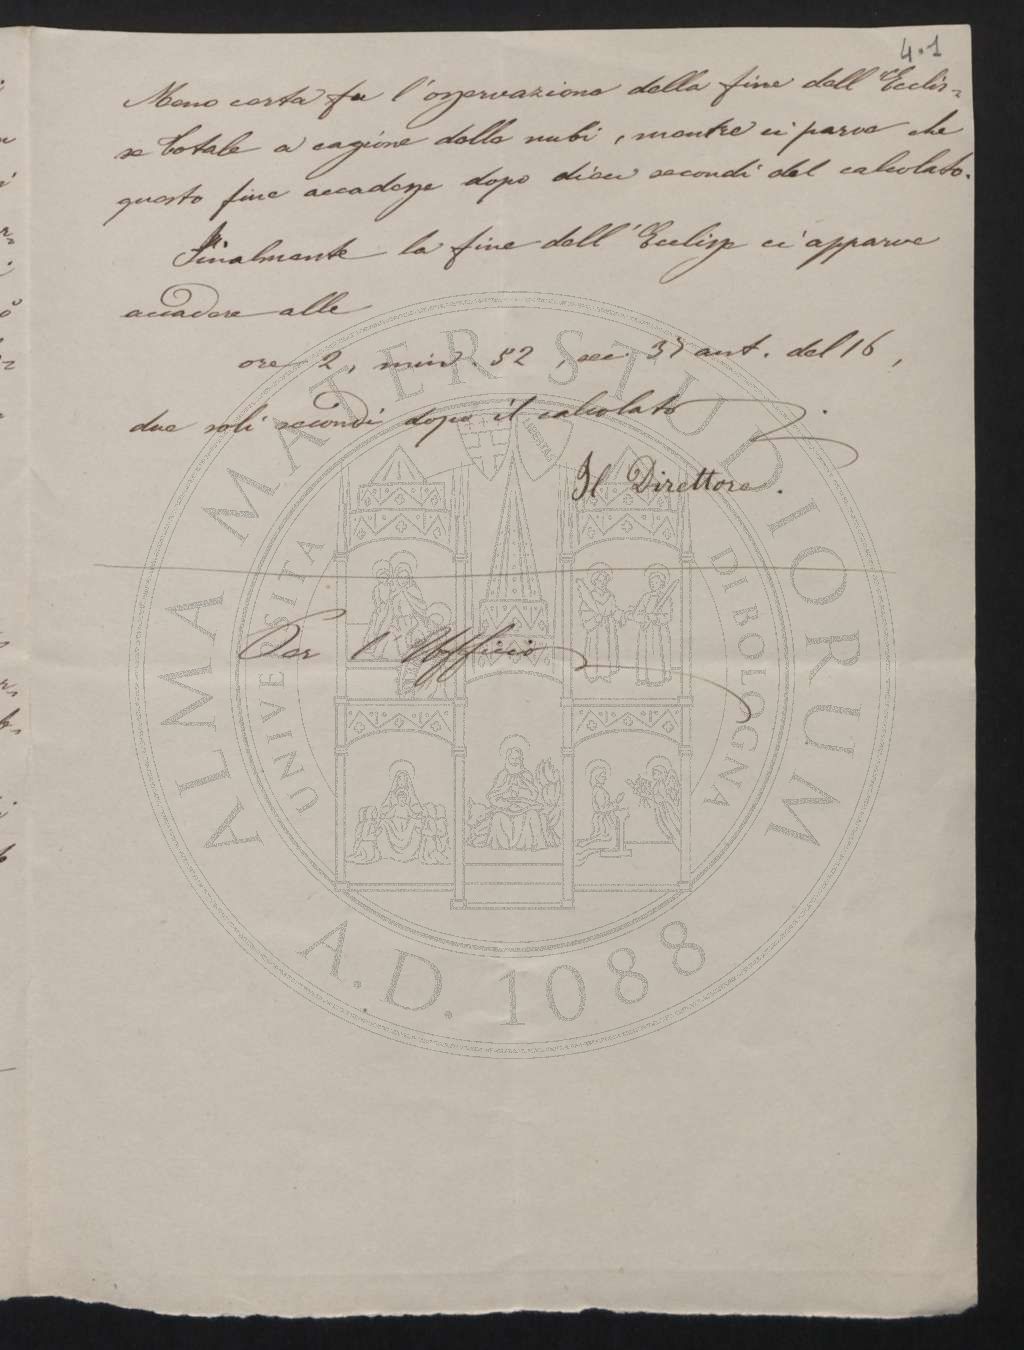 4.1
Meno certa fu l'osservazione della fine dell'Eclis=
se totale a cagione delle nubi, mentre ci parve che
questo fine accadesse dopo dieci secondi del calcolato.
Finalmente la fine dell'Eclisse ci apparve
accadere alle
ore 2, min. 52, sec 37 ant. del 16,
due soli secondi dopo il calcolato.
Il Direttore.
Per l'Ufficio
ALMA MATER STUDIORUM
UNIVERSITA DI BOLOGNA
A.D. 1088